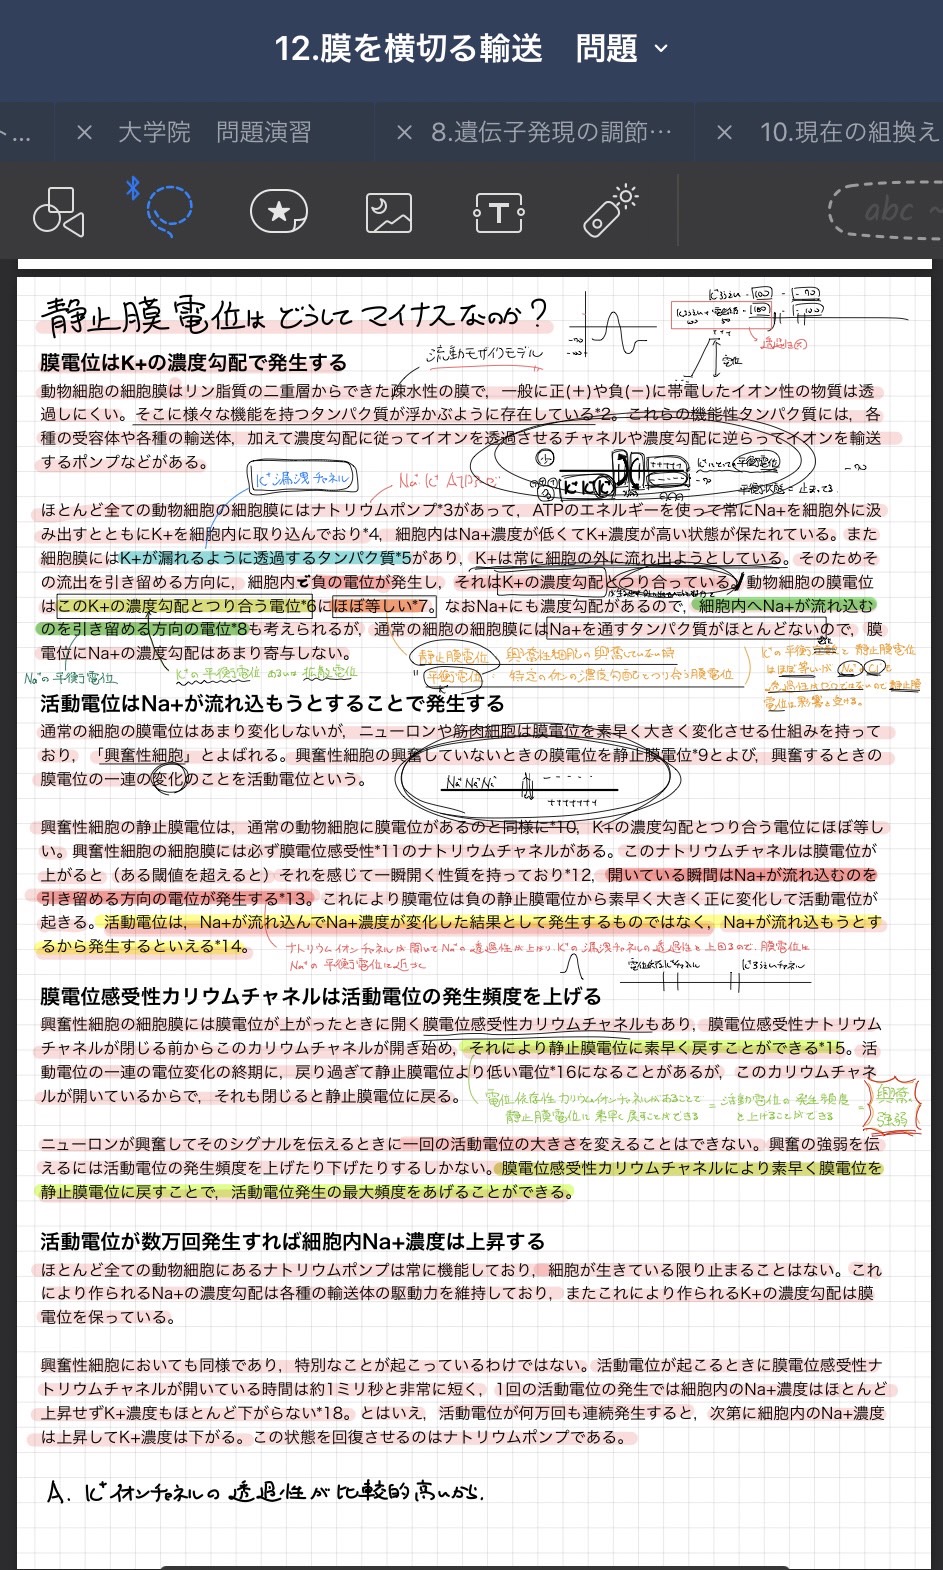 12.膜を横切る輸送　問題
大学院　問題演習
8.遺伝子発現の調節…
10.現在の組換え
abc
静止膜電位は どうして マイナスなのか？
膜電位はK+の濃度勾配で発生する
流動モザイクモデル
動物細胞の細胞膜はリン脂質の二重層からできた疎水性の膜で，一般に正(+)や負(−)に帯電したイオン性の物質は透
過しにくい。そこに様々な機能を持つタンパク質が浮かぶように存在している*2。これらの機能性タンパク質には，各
種の受容体や各種の輸送体，加えて濃度勾配に従ってイオンを透過させるチャネルや濃度勾配に逆らってイオンを輸送
するポンプなどがある。
K+漏洩チャネル
ほとんど全ての動物細胞の細胞膜にはナトリウムポンプ*3があって，ATPのエネルギーを使って常にNa+を細胞外に汲
み出すとともにK+を細胞内に取り込んでおり*4，細胞内はNa+濃度が低くてK+濃度が高い状態が保たれている。また
細胞膜にはK+が漏れるように透過するタンパク質*5があり，K+は常に細胞の外に流れ出ようとしている。そのためそ
の流出を引き留める方向に，細胞内で負の電位が発生し，それはK+の濃度勾配とつり合っている。動物細胞の膜電位
はこのK+の濃度勾配とつり合う電位*6にほぼ等しい*7。なおNa+にも濃度勾配があるので，細胞内へNa+が流れ込む
のを引き留める方向の電位*8も考えられるが，通常の細胞の細胞膜にはNa+を通すタンパク質がほとんどないので，膜
電位にNa+の濃度勾配はあまり寄与しない。
静止膜電位　興奮性細胞の興奮していない時
Na+の平衡電位
K+の平衡電位 あるいは 拡散電位
平衡電位：特定のイオンの濃度勾配とつり合う電位
活動電位はNa+が流れ込もうとすることで発生する
通常の細胞の膜電位はあまり変化しないが，ニューロンや筋肉細胞は膜電位を素早く大きく変化させる仕組みを持って
おり，「興奮性細胞」とよばれる。興奮性細胞の興奮していないときの膜電位を静止膜電位*9とよび，興奮するときの
膜電位の一連の変化のことを活動電位という。
Na+ Na+ Na+
興奮性細胞の静止膜電位は，通常の動物細胞に膜電位があるのと同様に*10，K+の濃度勾配とつり合う電位にほぼ等し
い。興奮性細胞の細胞膜には必ず膜電位感受性*11のナトリウムチャネルがある。このナトリウムチャネルは膜電位が
上がると（ある閾値を超えると）それを感じて一瞬開く性質を持っており*12，開いている瞬間はNa+が流れ込むのを
引き留める方向の電位が発生する*13。これにより膜電位は負の静止膜電位から素早く大きく正に変化して活動電位が
起きる。活動電位は，Na+が流れ込んでNa+濃度が変化した結果として発生するものではなく，Na+が流れ込もうとす
るから発生するといえる*14。
ナトリウムイオンチャネルが開いてNa+の透過性が上がり、K+の漏洩チャネルの透過性を上回るので、膜電位は
Na+の平衡電位に近づく
膜電位感受性カリウムチャネルは活動電位の発生頻度を上げる
興奮性細胞の細胞膜には膜電位が上がったときに開く膜電位感受性カリウムチャネルもあり，膜電位感受性ナトリウム
チャネルが閉じる前からこのカリウムチャネルが開き始め，それにより静止膜電位に素早く戻すことができる*15。活
動電位の一連の電位変化の終期に，戻り過ぎて静止膜電位より低い電位*16になることがあるが，このカリウムチャネ
ルが開いているからで，それも閉じると静止膜電位に戻る。
電位依存性カリウムイオンチャネルがあることで ＝ 活動電位の発生頻度
静止膜電位に素早く戻すことができる　を上げることができる
興奮
強弱
ニューロンが興奮してそのシグナルを伝えるときに一回の活動電位の大きさを変えることはできない。興奮の強弱を伝
えるには活動電位の発生頻度を上げたり下げたりするしかない。膜電位感受性カリウムチャネルにより素早く膜電位を
静止膜電位に戻すことで，活動電位発生の最大頻度をあげることができる。
活動電位が数万回発生すれば細胞内Na+濃度は上昇する
ほとんど全ての動物細胞にあるナトリウムポンプは常に機能しており，細胞が生きている限り止まることはない。これ
により作られるNa+の濃度勾配は各種の輸送体の駆動力を維持しており，またこれにより作られるK+の濃度勾配は膜
電位を保っている。
興奮性細胞においても同様であり，特別なことが起こっているわけではない。活動電位が起こるときに膜電位感受性ナ
トリウムチャネルが開いている時間は約1ミリ秒と非常に短く，1回の活動電位の発生では細胞内のNa+濃度はほとんど
上昇せずK+濃度もほとんど下がらない*18。とはいえ，活動電位が何万回も連続発生すると，次第に細胞内のNa+濃度
は上昇してK+濃度は下がる。この状態を回復させるのはナトリウムポンプである。
A. K+イオンチャネルの透過性が比較的高いから.